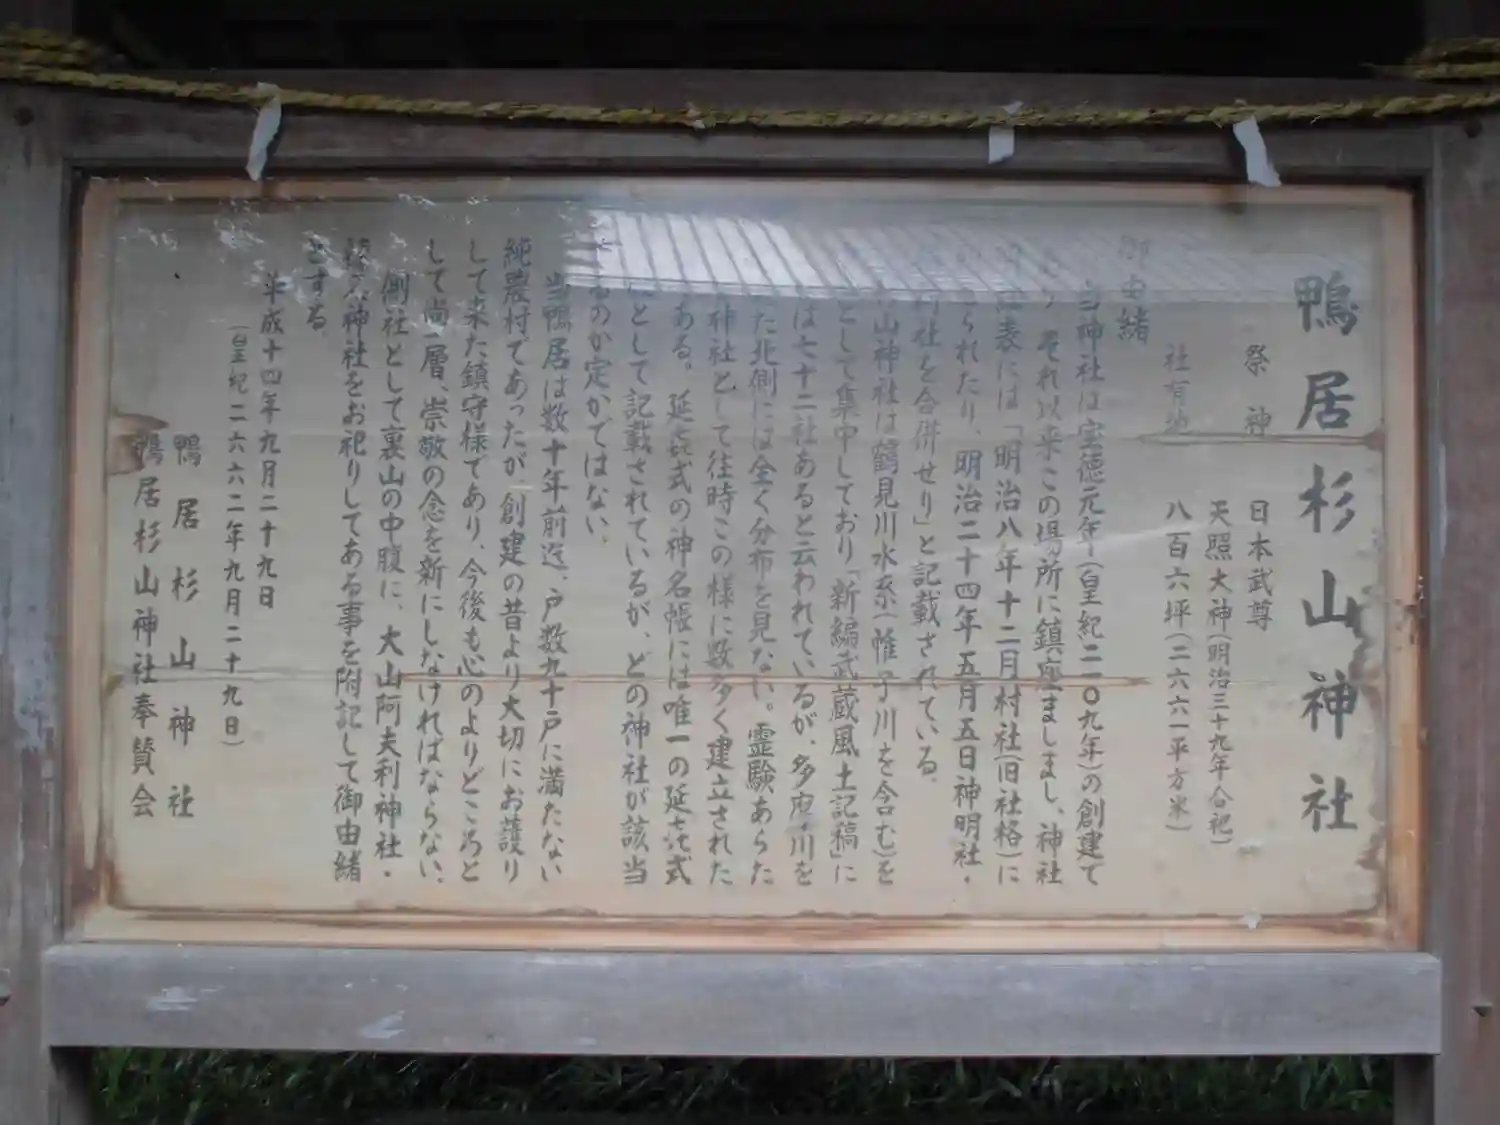 鴨居杉山神社
祭神 日本武尊
天照大神(明治三十九年合祀)
社有地 八百六坪(二六六一平方米)
御由緒
当神社は宝徳元年(皇紀二一〇九年)の創建て
それ以来この場所に鎮座ましまし、神社
表には「明治八年十二月村社(旧社格)に
られたり、明治二十四年五月五日神明社・
社を合併せり」と記載されている。
山神社は鶴見川水系(帷子川を含む)を
として集中しており「新編武蔵風土記稿」に
は七十二社あると云われているが、多摩川を
た北側には全く分布を見ない。霊験あらた
神社として往時この様に数多く建立された
ある。延㐂式の神名帳には唯一の延㐂式
として記載されているが、どの神社が該当
るのか定かではない、
当鴨居は数十年前迄、戸数九十戸に満たない
純農村であったが創建の昔より大切にお護り
して来た鎮守様であり、今後も心のよりどころと
して尚一層、崇敬の念を新にしなければならない、
側社として裏山の中腹に、大山阿夫利神社・
神社をお祀りしてある事を附記して御由緒
とする。
平成十四年九月二十九日
(皇紀二六六二年九月二十九日)
鴨居杉山神社
鴨居杉山神社奉賛会